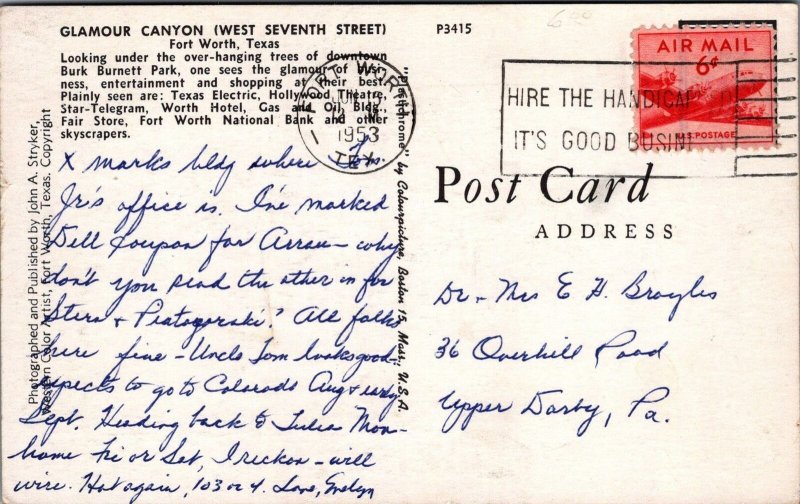 GLAMOUR CANYON (WEST SEVENTH STREET)
Fort Worth, Texas
Looking under the over-hanging trees of downtown
Burk Burnett Park, one sees the glamour of busi-
ness, entertainment and shopping at their best.
Plainly seen are: Texas Electric, Hollywood Theatre,
Star-Telegram, Worth Hotel, Gas and Oil Bldg.,
Fair Store, Fort Worth National Bank and other
skyscrapers.
P3415
Photographed and Published by John A. Stryker,
Western Color Artist, Fort Worth, Texas. Copyright
"Plastichrome" by Colourpicture, Boston 15, Mass., U.S.A.
FORT WORTH
1953
TEX
HIRE THE HANDICAPPED
IT'S GOOD BUSINE
AIR MAIL
6¢
U.S. POSTAGE
Post Card
ADDRESS
X marks bldg where Tom
Jr's office is. I've marked
Dell Coupon for Arrau – why
don't you send the other in for
Stern + Piatagorski? All folks
here fine – Uncle Tom looks good –
expects to go to Colorado Aug + early
Sept. Heading back to Tulia Mon –
home Fri or Sat, I reckon – will
wire. Hot again, 103 or 4. Love, Evelyn
Dr. + Mrs E H. Broyles
36 Overhill Road
Upper Darby, Pa.